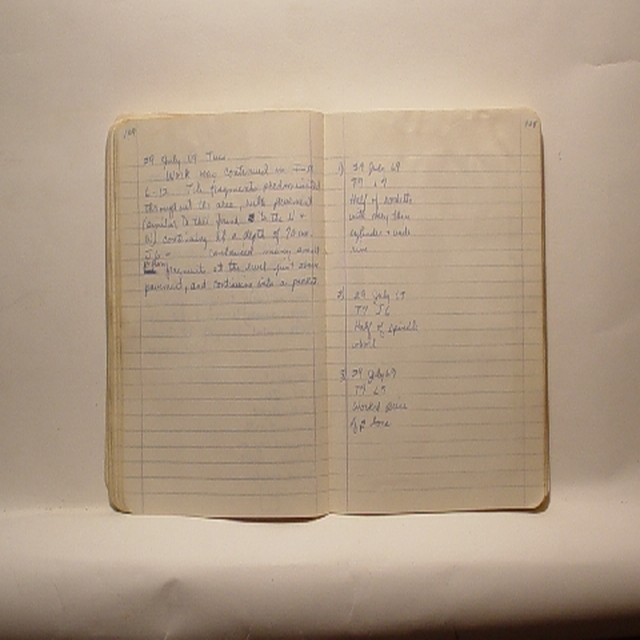 29 July 69 Tues
Work was continued in
6-12. Tile fragments predominated
throughout the area, with pavement
(similar to that found to the N +
W) continuing at a depth of
J6 - contained many small
fragments at the level just above
pavement, and continues into a
1) 29 July 69
T9
Half of rosette
with very thin
cylinder + wide
rim
2) 29 July 69
T9 J6
Half of spindle
whorl
3) 29 July 69
T9 L5
Worked piece
of bone